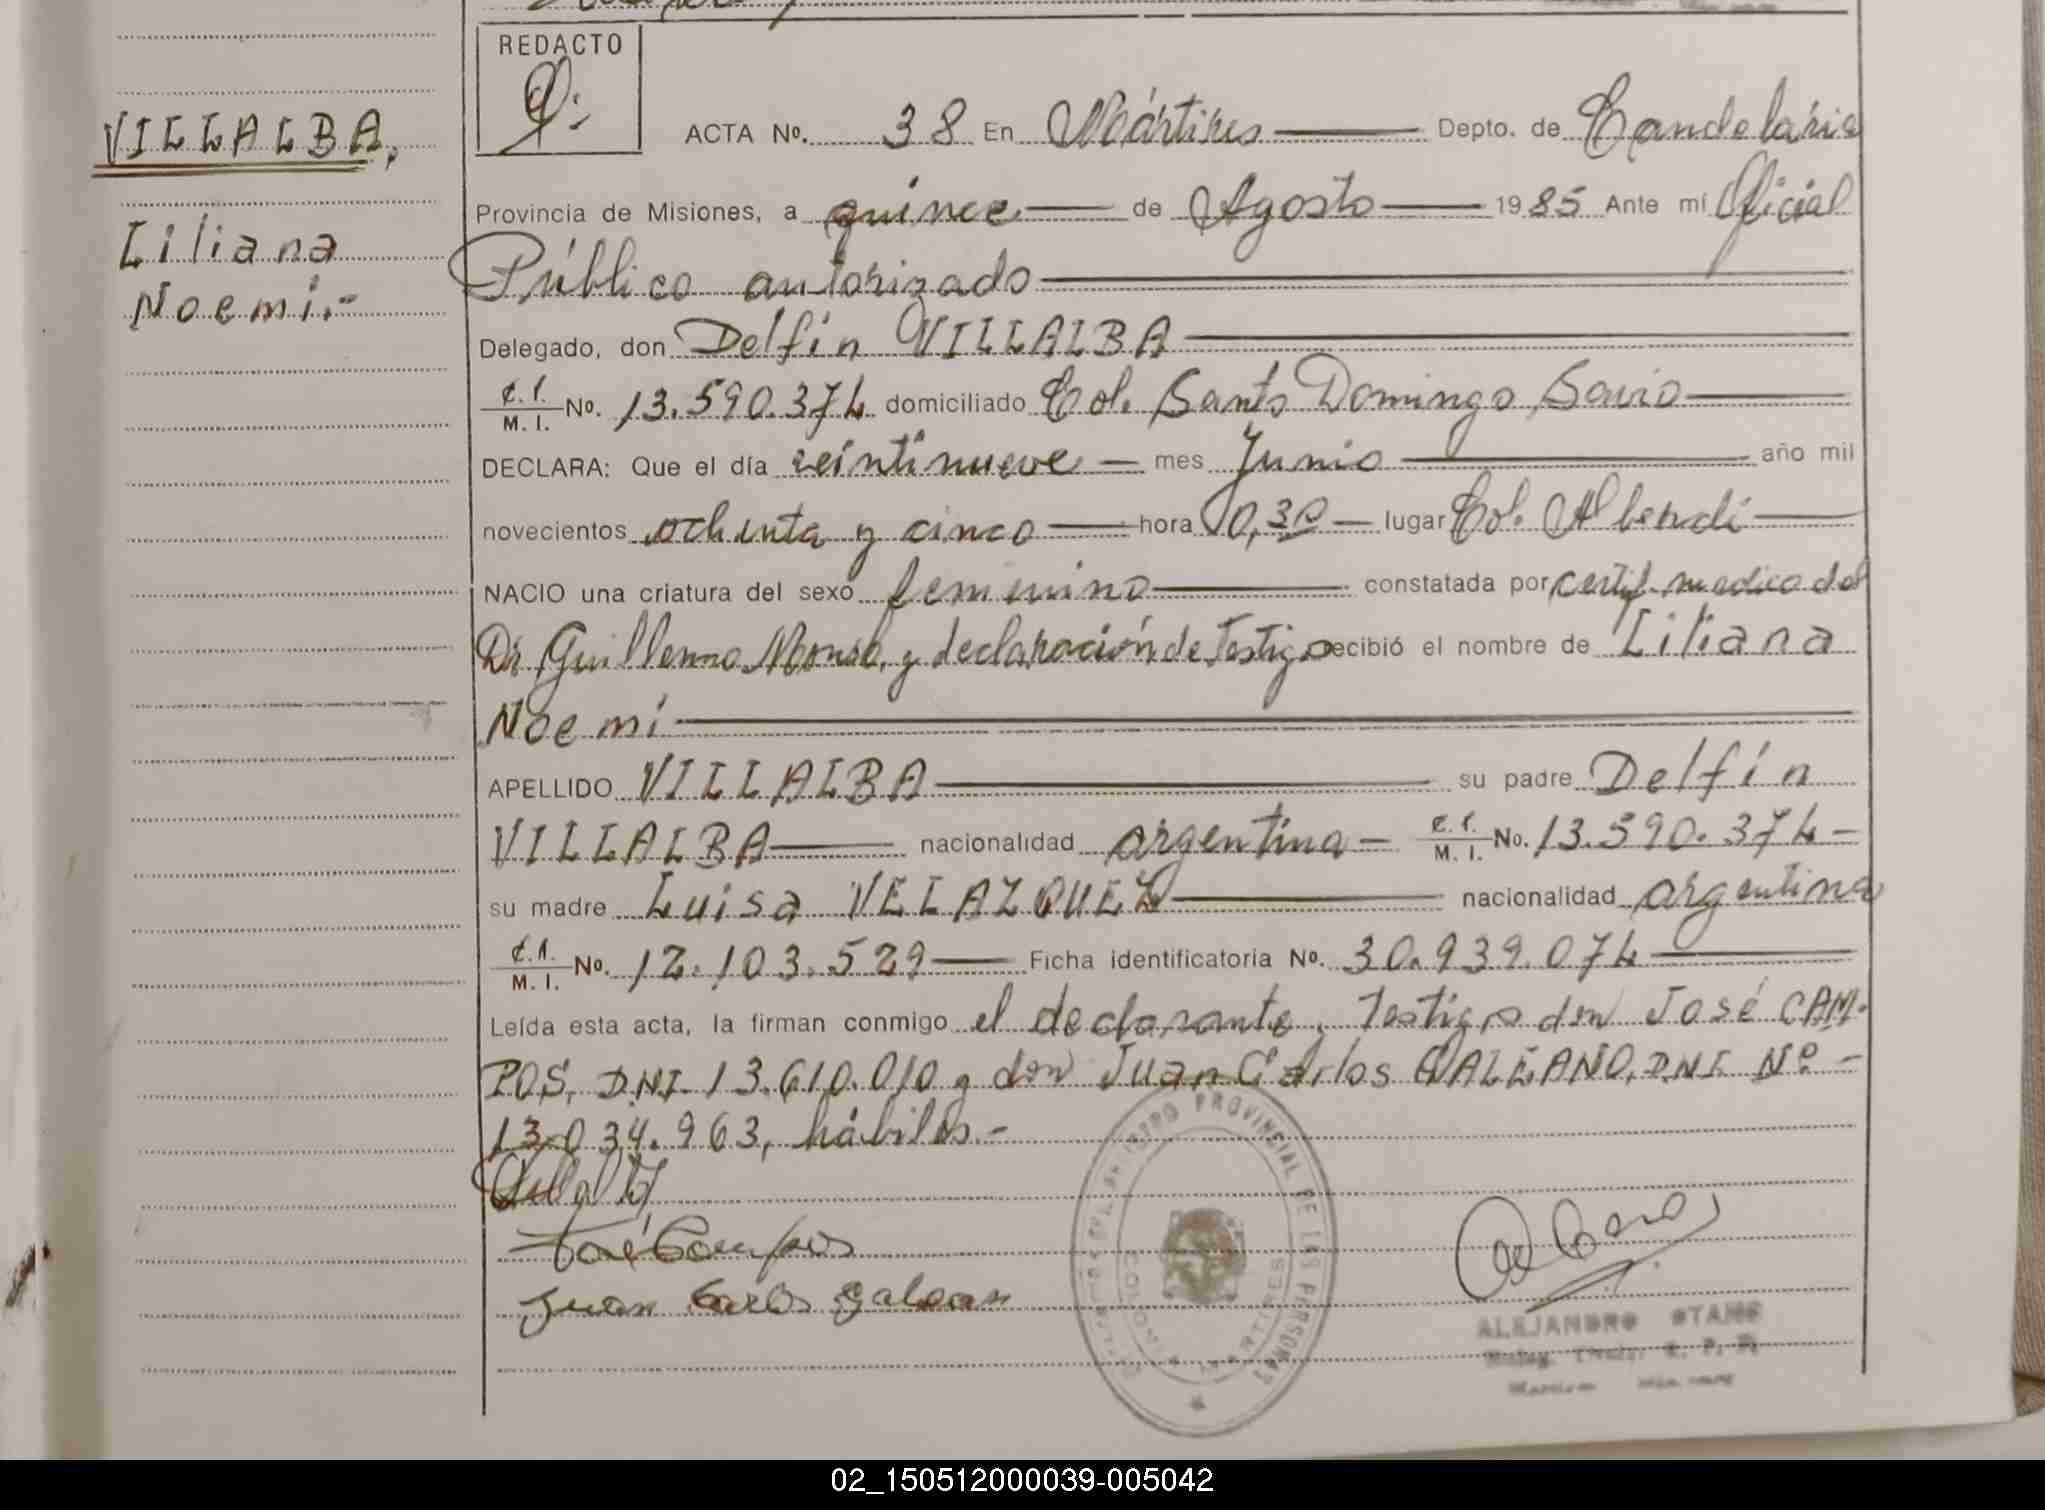 REDACTO
VILLALBA,
Liliana
Noemi.-
ACTA No. 38 En Mártires Depto. de Candelária
Provincia de Misiones, a quince de Agosto 1985 Ante mí Oficial
Público autorizado
Delegado, don Delfín VILLALBA
C.I. M. I. No. 13.590.374 domiciliado Col. Santo Domingo Savio
DECLARA: Que el día veintinueve mes Junio año mil
novecientos ochenta y cinco hora 0,30 lugar Col. Alberdi
NACIO una criatura del sexo femenino constatada por certif. medico del
Dr Guillermo y declaración de Testigo recibió el nombre de Liliana
Noemi
APELLIDO VILLALBA su padre Delfín
VILLALBA nacionalidad argentina C.I. M. I. No. 13.590.374
su madre Luisa VELAZQUEZ nacionalidad argentina
C.I. M. I. No. 12.103.529 Ficha identificatoria No. 30.939.074
Leída esta acta, la firman conmigo el declarante, Testigo don José CAM-
POS, DNI. 13.610.010 y don Juan Carlos GALEANO, DNI. Nº -
13.034.963, hábiles.-
Villalba
José Campos
Juan Carlos Galeano
REGISTRO PROVINCIAL DE LAS PERSONAS
COLONIA MARTIRES
ALEJANDRO
02_150512000039-005042